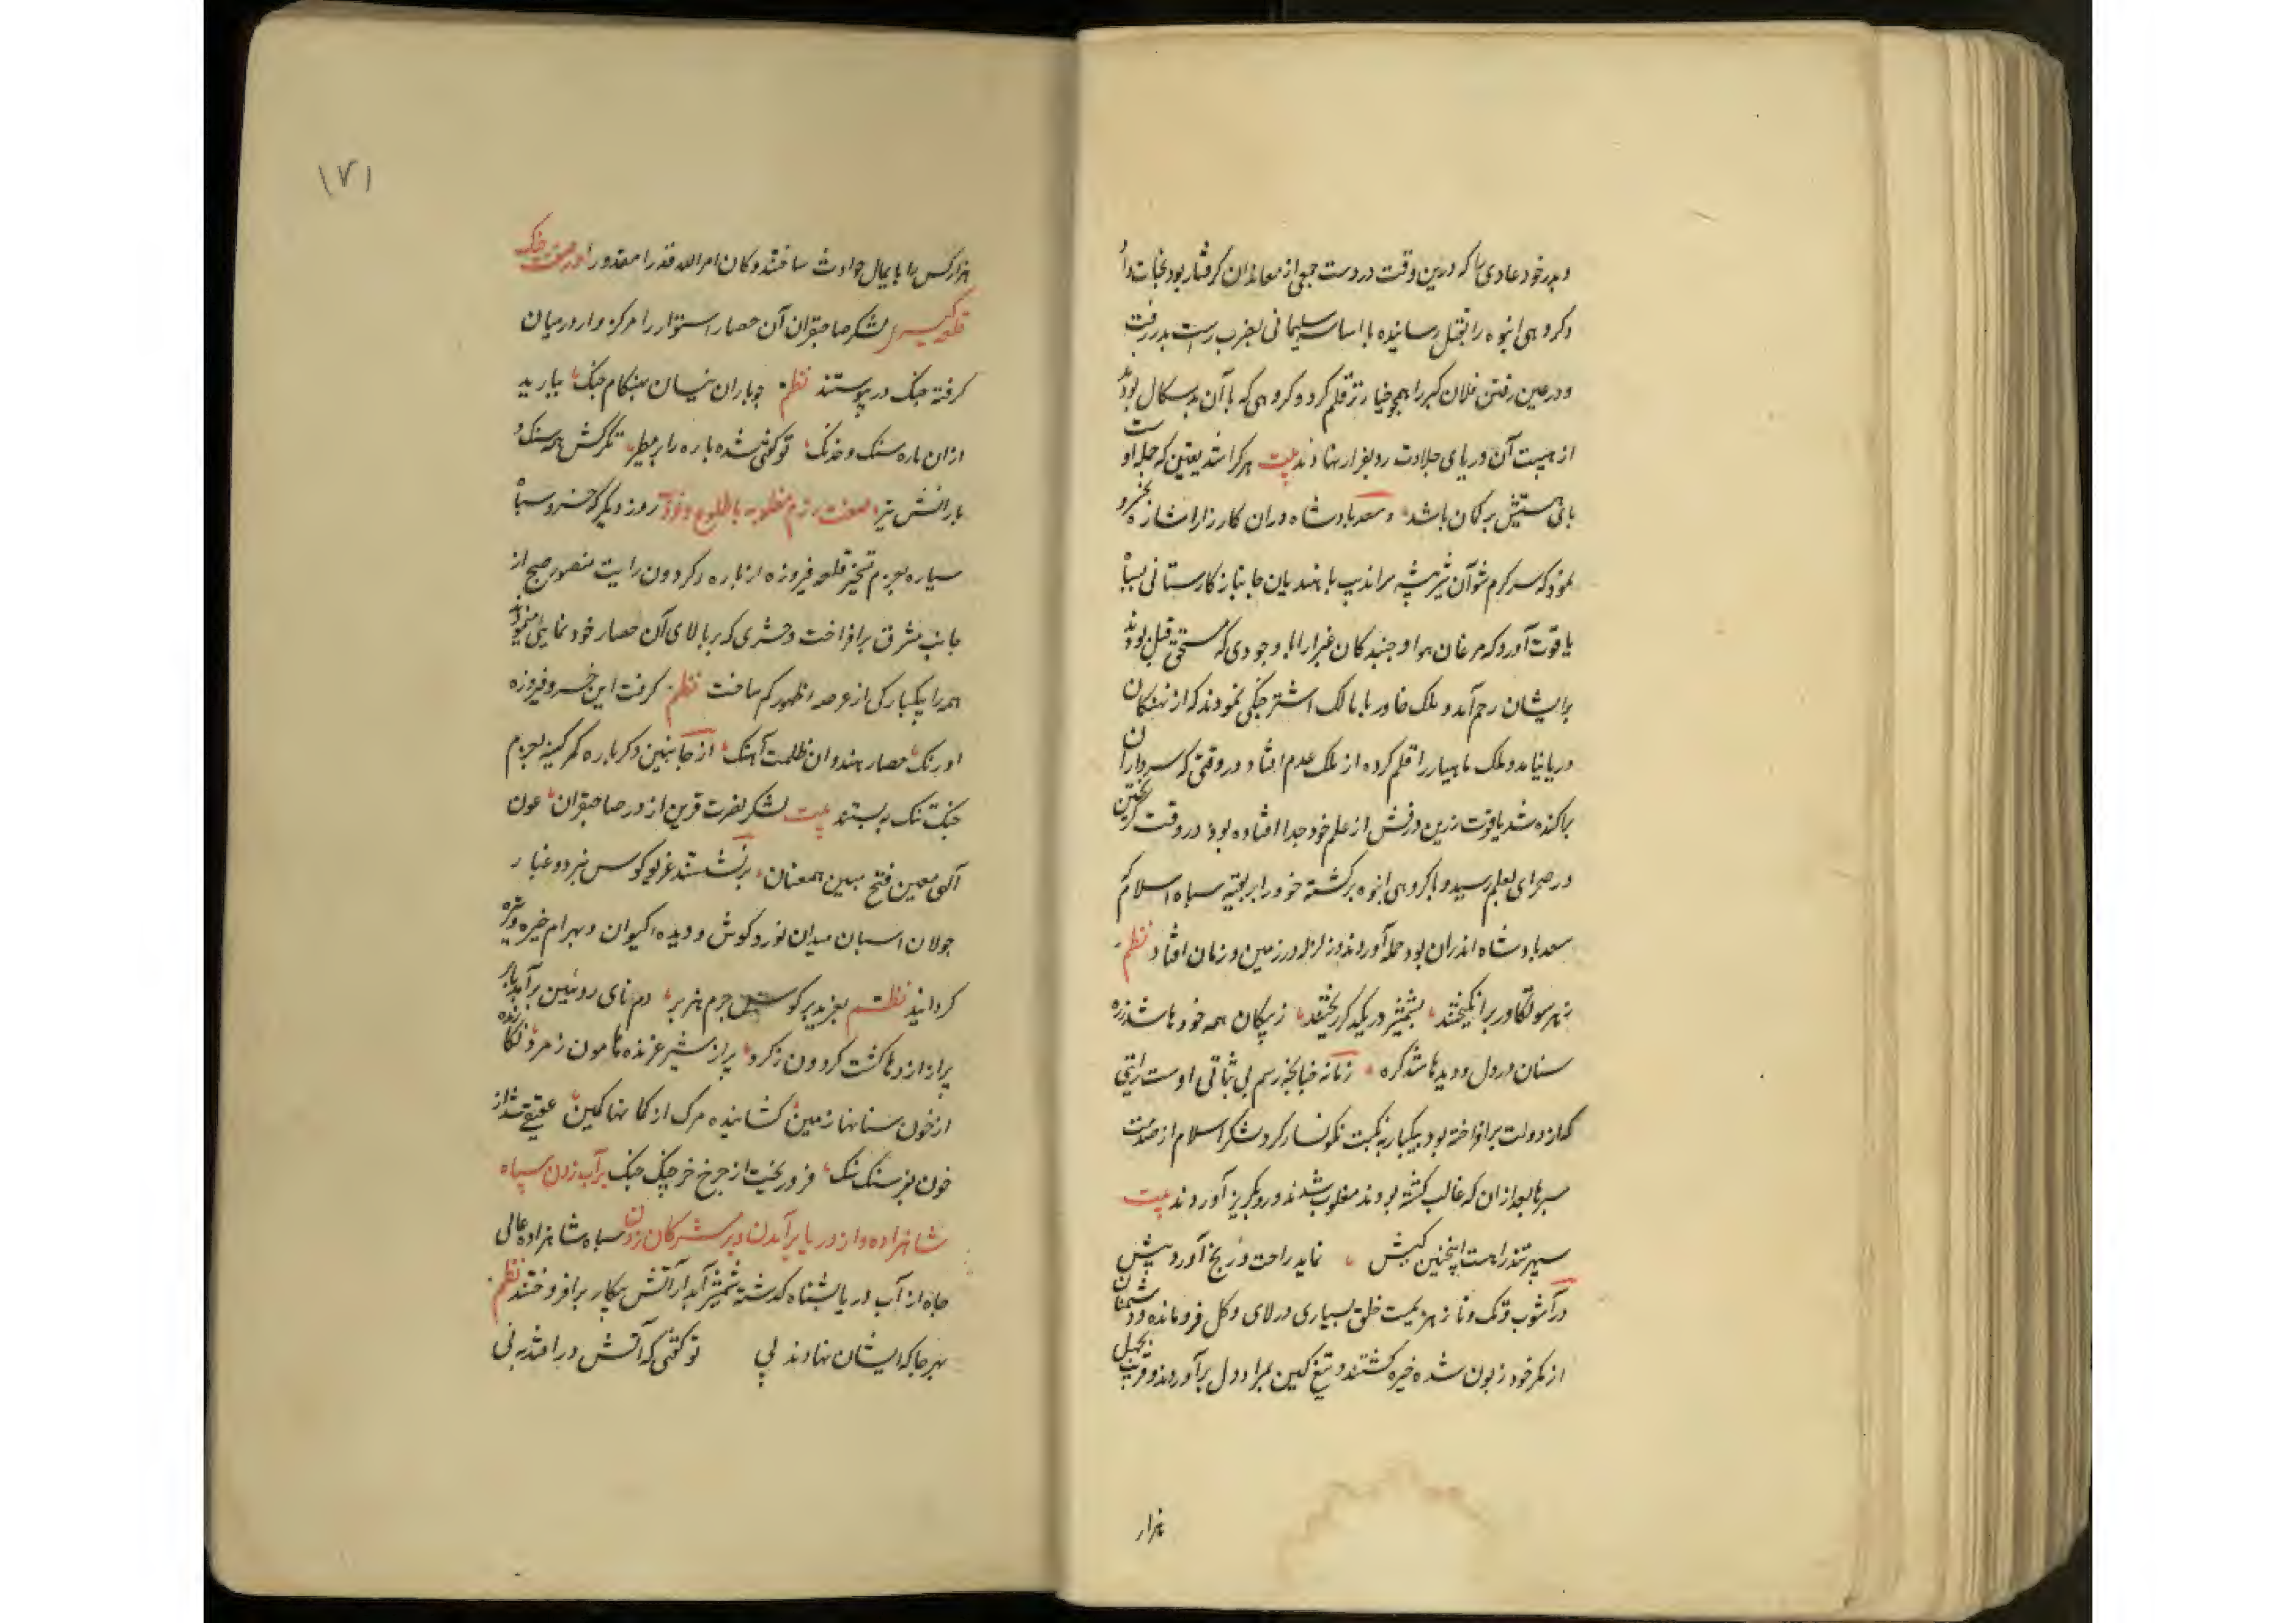 و پدر خود عادی را که در بین وقت در دست جمعی از معاندان گرفتار بود نجات داد
و کروهی انبوه را بقتل رسانیده با اساس سلیمانی بضرب راست بدر رفت
و در عین رفتن فلان کبر را همچو خیار تر قلم کرد و کروهی که با آن بدسکال بودند
از هیبت آن دریای جلادت رو بفرار نهادند بیت هر کرا شد یقین که حمله او
پای هستیش بر کمان باشد سعد پادشاه دران کارزار
نمود که سرکرم شو آن شیر بیشه سراندیب با هندیان جانباز کارستانی بسپاه
یاقوت آورد که مرغان هوا و جنبدکان غبرا را با وجودی که مستحق قتل بودند
برایشان رحم آمد و ملک خاور با مالک اشتر جنکی نمودند که از نهنکان
دریا نیامد و ملک ماهیار را قلم کرده از ملک عدم افتاد در وقتی که سرداران
پراکنده شد یاقوت زرین درفش از علم خود جدا افتاده بود در وقت کریختن
در صحرای بعلم رسید و با کروهی انبوه برکشته خود را بر بقیه سپاه اسلام که
سعد پادشاه اندران بود حمله آوردند و زلزله در زمین و زمان افتاد نظم
ز هر سو تکاور برانکیختند بشمشیر در یکدکر ریختند ز پیکان همه خودها شد زره
سنان در دل و دیدها شد کره زمانه چنانچه رسم بی ثباتی اوست رایتی
که از دولت برافراخته بود بیکبار بنکبت نکونسار کرد لشکر اسلام از صدمت
سپرها بعد از ان که غالب کشته بودند مغلوب شدند و رو بکریز آوردند بیت
سپهر تند را هست اینچنین کیش نماید راحت و رنج آورد پیش
در آشوب و تک و تاز هزیمت خلق بسیاری در لای و کل فرو مانده و دشمنان
از مکر خود زبون شده خیره کشتند و تیغ کین بمراد دل برآوردند و قریب بچهل
هزار
۱۷۱
هزار کس را پایمال حوادث ساختند و کان امر الله قدرا مقدورا در صفت جنک
قلعه کیری لشکر صاحبقران آن حصار استوار را مرکز وار در میان
کرفته جنک در پیوستند نظم چو باران نیسان بهنکام جنک ببارید
ازان باره سنک و خدنک تو کفتی شده باره ابر مطیر تکرکش همه سنک و
بارانش تیر صفت رزم روز دیکر که خسرو سپاه
سیاره بعزم تسخیر قلعه فیروزه از باره کردون رایت منصور صبح از
جانب مشرق برافراخت و حشری که بر بالای آن حصار خود نمایی مینمودند
همه را بیکبارکی از عرصه ظهور کم ساخت نظم کرفت این خسرو فیروزه
اورنک حصار هندوان ظلمت آهنک از جانبین دکر باره کمر کینه بعزم
جنک تنک بر بستند بیت لشکر نصرت قرین از در صاحبقران عون
آلهی معین فتح مبین همعنان برنشستند غریو کوس نبرد و غبار
جولان اسبان میدان نورد کوش و دیده کیوان و بهرام خیره و تیره
کردانید نظم بغرید بر کوس چرم هزبر دم نای روئین برآمد بابر
پر از اژدها کشت کردون ز کرد پر از شیر غرنده هامون ز مرد
از خون سنانها زمین کشانیده مرک از کمانها کمین عقیقی شد از
خون بفرسنک سنک فرو ریخت از چرخ خرچنک چنک بر آب زدن سپاه
شاهزاده و از دریا برآمدن و بر مشرکان زدن سپاه شاهزاده عالی
جاه از آب دریا بشناه کذشته بشمشیر آبدار آتش پیکار برافروختند نظم
بهر جا که ایشان نهادند پی تو کفتی که آتش در افتد به نی